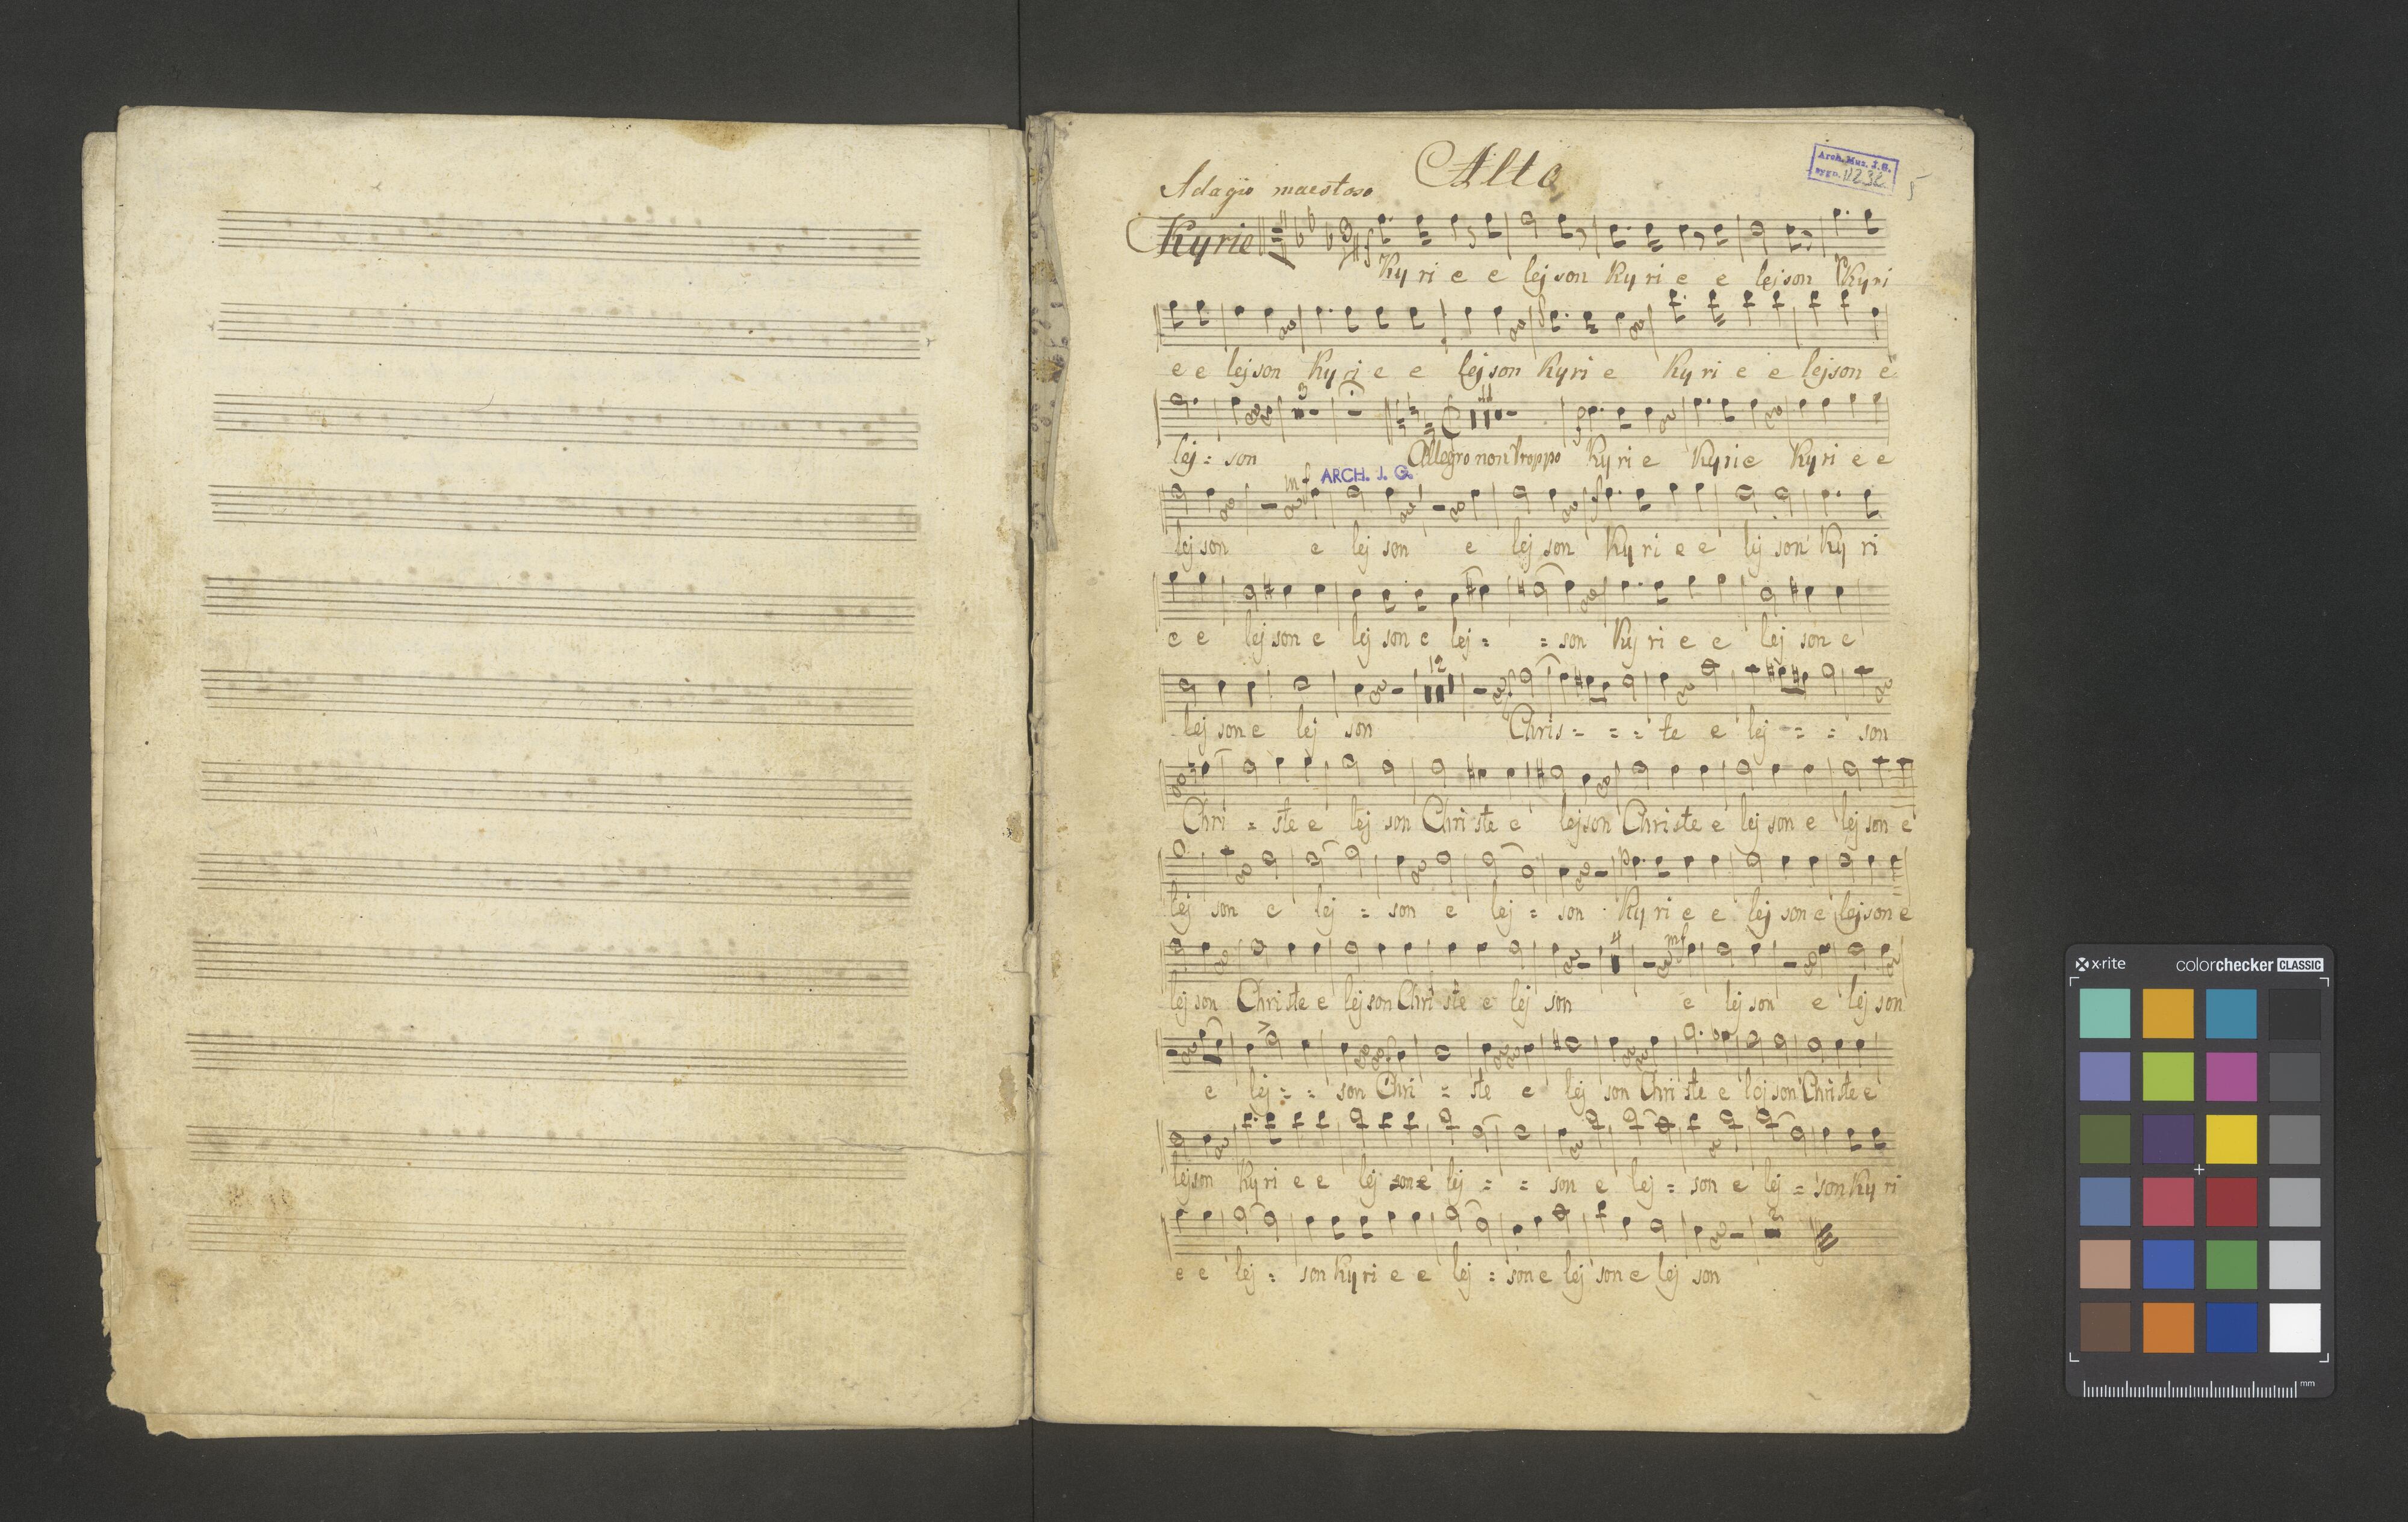 Alto
Arch. Muz. J. G.
sygn. II 232
5
Adagio maestoso
Kyrie
f
Ky ri e e lej son Ky ri e e lej son Ky ri
e e lej son Ky ri e e lej son Ky ri e Ky ri e e lej son e
3
lej = son Allegro non Troppo Ky ri e Ky ri e Ky ri e e
mf ARCH. J. G.
lej son e lej son e lej son Ky ri e e lej son Ky ri
e e lej son e lej son e lej = = son Ky ri e e lej son e
12
lej son e lej son Chris = = = te e lej = = = son
Chri = ste e lej son Chri ste e lej son Chri ste e lej son e lej son e
p
lej son e lej = son e lej = son Ky ri e e lej son e lej son e
4 mf
lej son Chri ste e lej son Chri ste e lej son e lej son e lej son
e lej = = son Chri = ste e lej son Chri ste e lej son Chri ste e
lej son Ky ri e e lej son e lej = = son e lej = son e lej = son Ky ri
e e lej = son Ky ri e e lej = son e lej son e lej son
x-rite
colorchecker CLASSIC
mm